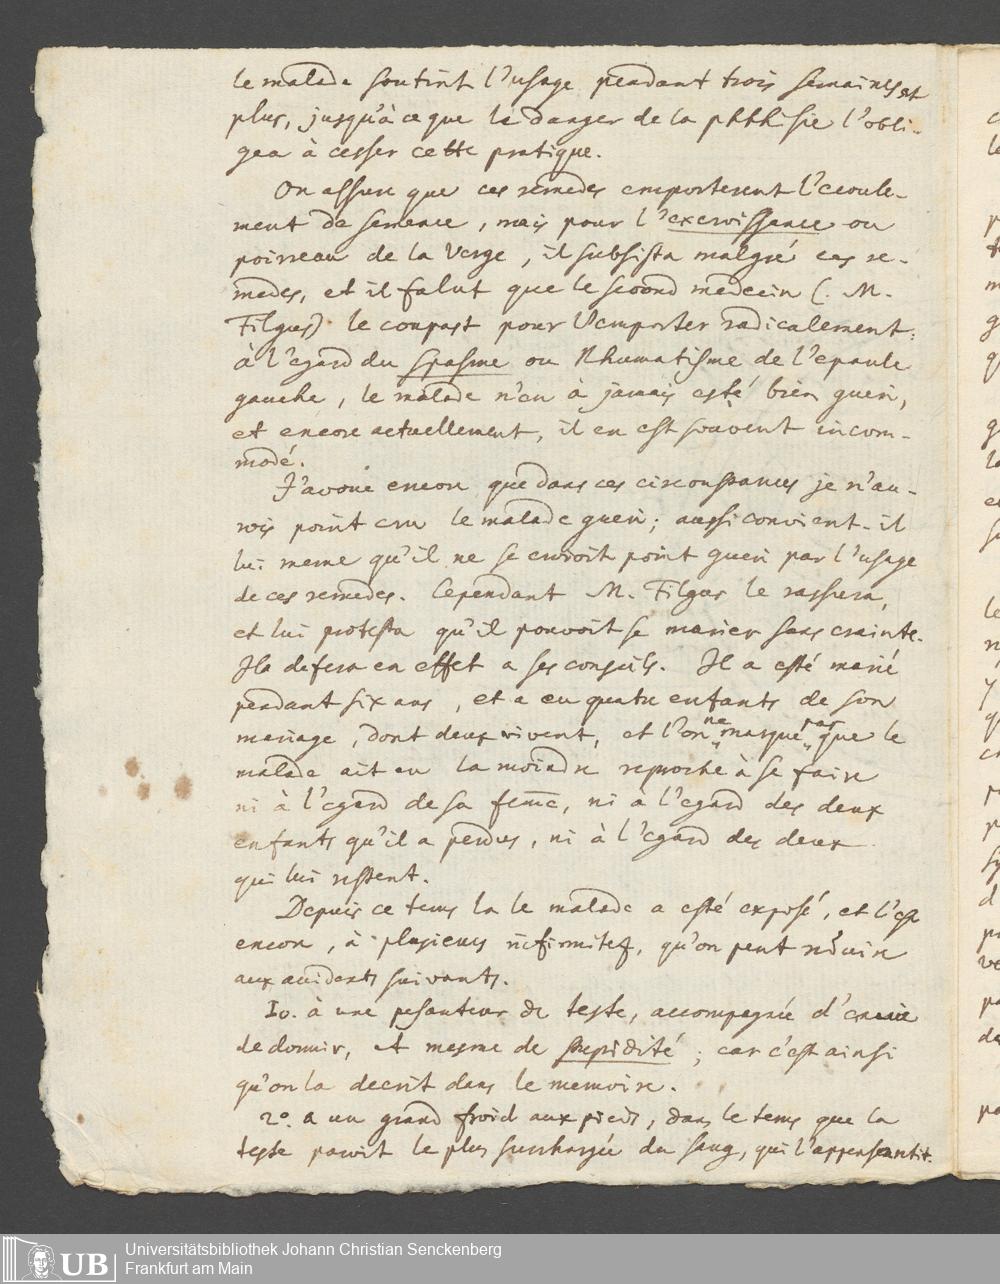 le malade soutint l'usage pendant trois semaines et
plus, jusqu'à ce que le danger de la phthisie l'obli-
gea à cesser cette pratique.
On assure que ces remedes emporterent l'ecoule-
ment de semence, mais pour l'excroissance ou
poireau de la Verge, il subsista malgré ces re-
medes, et il falut que le second medecin (. M.
Filgus). le coupast pour l'emporter radicalement:
à l'egard du spasme ou Rhumatisme de l'epaule
gauche, le malade n'en à jamais esté bien gueri,
et encore actuellement, il en est souvent incom-
modé.
J'avoüe encore que dans ces circonstances je n'au-
rois point cru le malade gueri; aussi convient-il
lui meme qu'il ne se croioit point gueri par l'usage
de ces remedes. Cependant M. Filgus le rassura,
et lui protesta qu'il pouvoit se marier sans crainte.
Il a defera en effet a ses conseils. Il a esté marié
pendant six ans, et a eu quatre enfants de son
mariage, dont deux vivent, et l'on ne marque pas que le
malade ait eu la moindre reproche à se faire
ni à l'egard de sa fem̅e, ni a l'egard des deux
enfants qu'il a perdus, ni à l'egard des deux
qui lui restent.
Depuis ce tems la le malade a esté exposé, et l'est
encore, à plusieurs infirmitez, qu'on peut reduire
aux accidents suivants.
1o. à une pesanteur de teste, accompagnée d'envie
de dormir, et mesme de stupidité; car c'est ainsi
qu'on la decrit dans le memoire.
2o. a un grand froid aux pieds, dans le tems que la
teste paroit le plus surchargée du sang, qui l'appensentit.
Universitätsbibliothek Johann Christian Senckenberg
Frankfurt am Main
UB